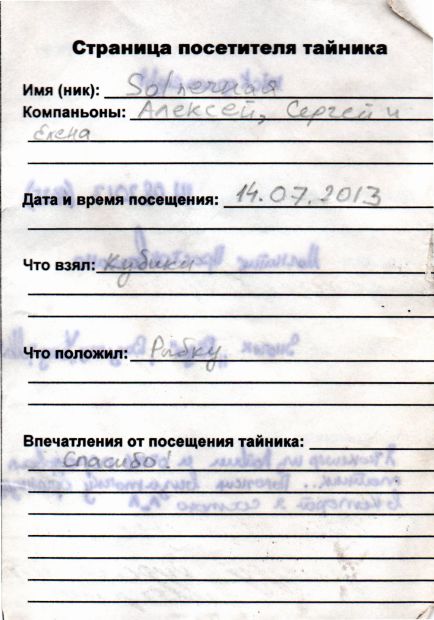 Страница посетителя тайника
Имя (ник): Solnечная
Компаньоны: Алексей, Сергей и
Елена
Дата и время посещения: 14.07.2013
Что взял: Кубики
Что положил: Рыбку
Впечатления от посещения тайника:
Спасибо!